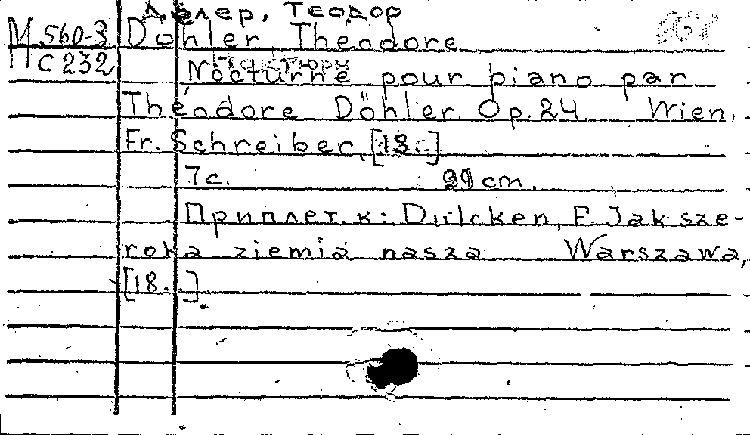 Дёлер, Теодор
М 560-3 Döhler, Theodore
П с 232
Nocturne pour piano par
Théodore Döhler. Op. 24 Wien.
Fr. Schreiber, [18..]
7 с. 29 cm.
Приплет. к: Dulcken, F. Jak sze-
roka ziemia nasza Warszawa,
[18..].